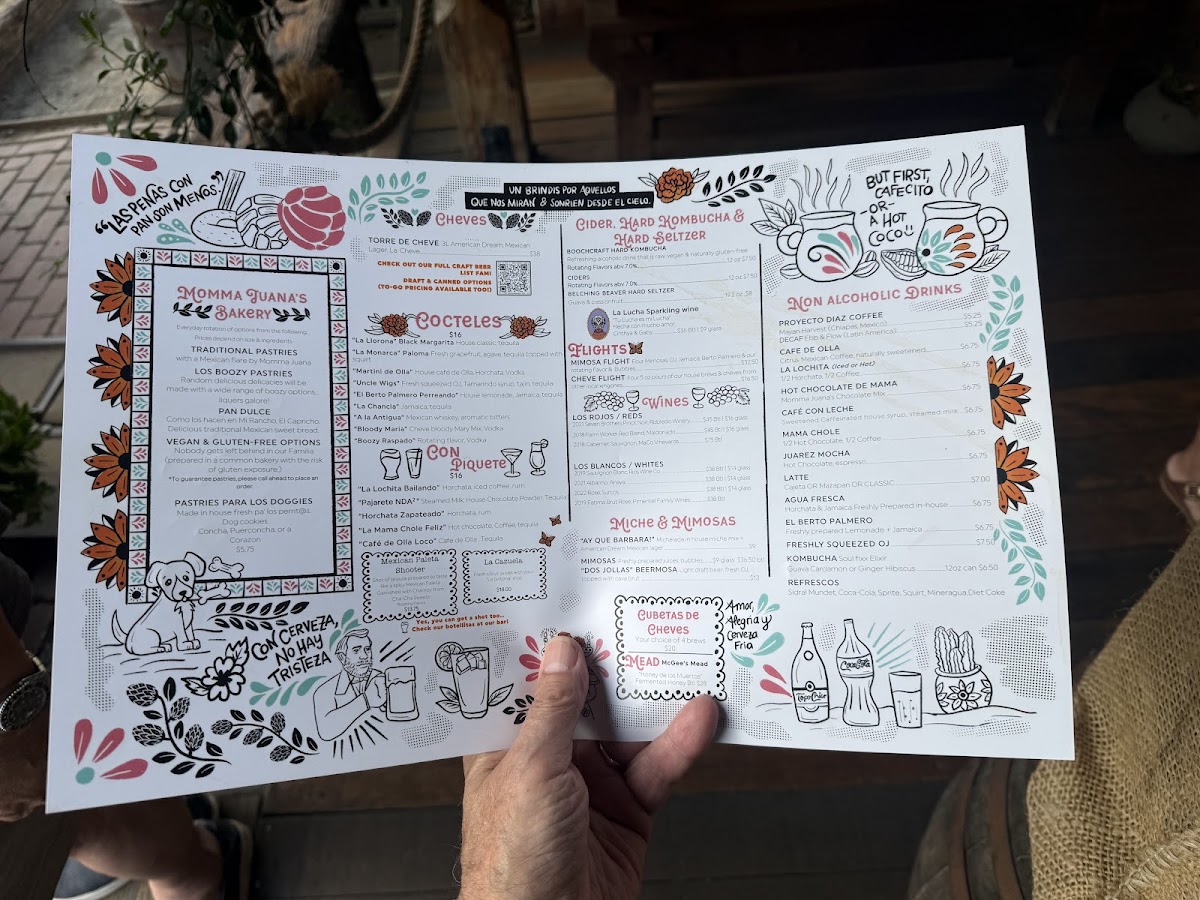 "LAS PEÑAS CON
PAN SON MENOS."
MOMMA JUANA'S
BAKERY
Everyday rotation of options from the following...
Prices depend on size & ingredients
TRADITIONAL PASTRIES
with a Mexican flare by Momma Juana
LOS BOOZY PASTRIES
Random delicious delicacies will be
made with a wide range of boozy options...
liquors galore!
PAN DULCE
Como los hacen en Mi Rancho, El Capricho.
Delicious traditional Mexican sweet bread.
VEGAN & GLUTEN-FREE OPTIONS
Nobody gets left behind in our Familia
(prepared in a common bakery with the risk
of gluten exposure.)
*To guarantee pastries, please call ahead to place an
order.
PASTRIES PARA LOS DOGGIES
Made in house fresh pa' los perrit@s.
Dog cookies
Concha, Puerconcha, or a
Corazon
$5.75
CON CERVEZA,
NO HAY
TRISTEZA
UN BRINDIS POR AQUELLOS
QUE NOS MIRAN & SONRIEN DESDE EL CIELO.
CHEVES
TORRE DE CHEVE 3L American Dream Mexican
Lager, La Cheve $38
CHECK OUT OUR FULL CRAFT BEER
LIST FAM!
DRAFT & CANNED OPTIONS
(TO-GO PRICING AVAILABLE TOO!)
COCTELES
$16
"La Llorona" Black Margarita House classic, tequila
"La Monarca" Paloma Fresh grapefruit, agave, tequila topped with
squirt
"Martini de Olla" House café de Olla, Horchata, Vodka
"Uncle Wigs" Fresh squeezed OJ, Tamarindo syrup, tajin, tequila
"El Berto Palmero Perreando" House lemonade, Jamaica, tequila
"La Chancla" Jamaica, tequila
"A la Antigua" Mexican whiskey, aromatic bitters
"Bloody Maria" Cheve bloody Mary Mix, Vodka
"Boozy Raspado" Rotating flavor, Vodka
CON
PIQUETE
$16
"La Lochita Bailando" Horchata, iced coffee, rum
"Pajarete NDA²" Steamed Milk House Chocolate Powder, Tequila
"Horchata Zapateado" Horchata, rum
"La Mama Chole Feliz" Hot chocolate, Coffee, tequila
"Café de Olla Loco" Cafe de Olla, Tequila
Mexican Paleta
Shooter
$13.75
La Cazuela
$18.00
Yes, you can get a shot too...
Check our botellitas at our bar!
CIDER, HARD KOMBUCHA &
HARD SELTZER
BOOCHCRAFT HARD KOMBUCHA
Refreshing alcoholic drink that is raw, vegan & naturally gluten-free
Rotating Flavors abv 7.0% 12 oz $7.50
CIDERS
Rotating Flavors abv 7.0% 12 oz $7.50
BELCHING BEAVER HARD SELTZER
Guava & passionfruit 19.2 oz. $8
La Lucha Sparkling wine
"Tu Lucha es mi Lucha"
Hecha con mucho amor,
Cinthya & Gaby $38 Btl | $9 glass
FLIGHTS
MIMOSA FLIGHT Four Mimosas: OJ, Jamaica, Berto Palmero & our
rotating flavor & Bubbles $32.50
CHEVE FLIGHT Four 5 oz pours of our house brews & cheves from
other local amigxs $16.50
WINES
LOS ROJOS / REDS
2021 Seven Brothers Pinot Noir, Robledo Winery $45 Btl | $16 glass
2018 Farm Worker Red Blend, Maldonado $45 Btl | $16 glass
2018 Cabernet Sauvignon, MaCo Vineyards $75 Btl
LOS BLANCOS / WHITES
2019 Sauvignon Blanc, Rios Wine Co. $38 Btl | $14 glass
2021 Albarino, Anaya $38 Btl | $14 glass
2022 Rose, Suncry $38 Btl | $14 glass
2019 Fatima Brut Rose, Pimentel Family Wines $38 Btl
MICHE & MIMOSAS
"AY QUE BARBARA!" Michelada in house miche mix +
American Dream Mexican lager $9
MIMOSAS Freshly prepared juices, bubbles $9 glass $36.50 btl
"DOS JOLLAS" BEERMOSA Light craft beer, fresh OJ,
topped with cava brut $13
CUBETAS DE
CHEVES
Your choice of 4 brews
$20
MEAD McGee's Mead
"Honey de los Muertos"
Fermented Honey Btl $28
Amor,
Alegria y
Cerveza
Fria
BUT FIRST,
CAFECITO
-OR-
A HOT
COCO
NON ALCOHOLIC DRINKS
PROYECTO DIAZ COFFEE $5.25
Mayan Harvest (Chiapas, Mexico) $5.25
DECAF Ebb & Flow (Latin America)
CAFE DE OLLA
Citrus Mexican Coffee, naturally sweetened $6.75
LA LOCHITA (Iced or Hot)
1/2 Horchata, 1/2 Coffee $6.75
HOT CHOCOLATE DE MAMA
Momma Juana's Chocolate Mix $6.75
CAFÉ CON LECHE
Sweetened Caffeinated house syrup, steamed milk $6.75
MAMA CHOLE
1/2 Hot Chocolate, 1/2 Coffee $6.75
JUAREZ MOCHA
Hot Chocolate, espresso $6.75
LATTE
Cajeta OR Mazapan OR CLASSIC $7.00
AGUA FRESCA
Horchata & Jamaica Freshly Prepared in-house $6.75
EL BERTO PALMERO
Freshly prepared Lemonade + Jamaica $6.75
FRESHLY SQUEEZED OJ $7.50
KOMBUCHA Soulfixx Elixir
Guava Cardamon or Ginger Hibiscus 12oz can $6.50
REFRESCOS
Sidral Mundet, Coca-Cola, Sprite, Squirt, Mineragua, Diet Coke
Topo Chico
Coca-Cola